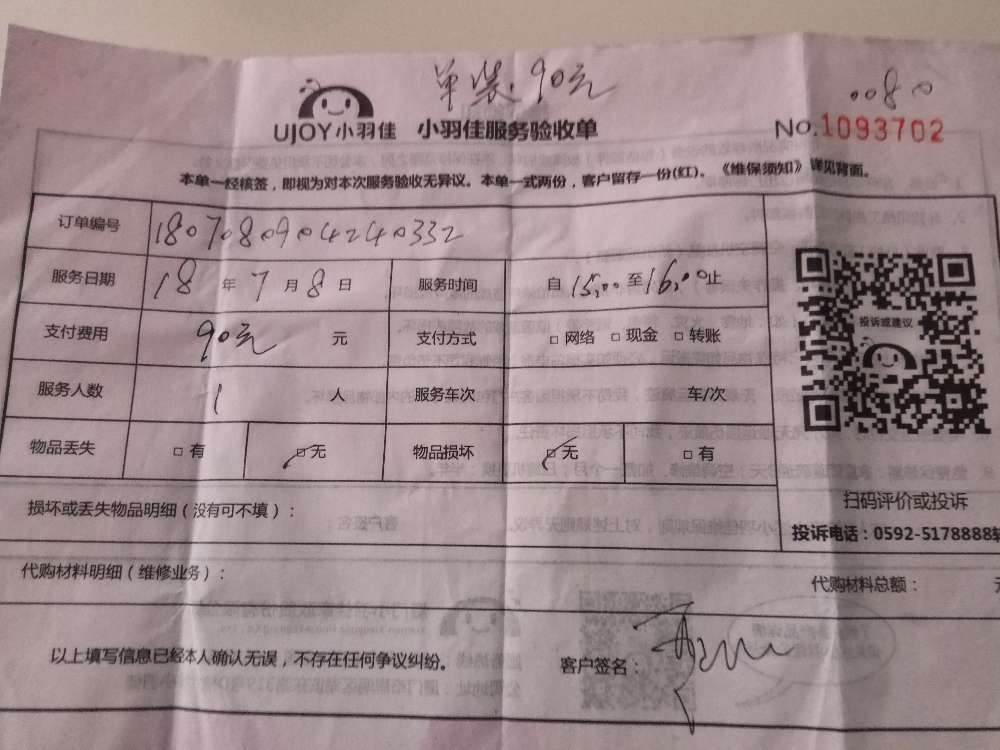 单装.90元
0080
UJOY小羽佳 小羽佳服务验收单
No.1093702
本单一经核签，即视为对本次服务验收无异议。本单一式两份，客户留存一份(红)。《维保须知》详见背面。
订单编号 180708904240332
服务日期 18 年 7 月 8 日 服务时间 自 15:00 至 16:00 止
支付费用 90元 元 支付方式 □ 网络 □ 现金 □ 转账
服务人数 1 人 服务车次 车/次
物品丢失 □ 有 □ 无 物品损坏 □ 无 □ 有
投诉或建议
扫码评价或投诉
投诉电话：0592-5178888转
损坏或丢失物品明细（没有可不填）：
代购材料明细（维修业务）：
代购材料总额： 元
以上填写信息已经本人确认无误，不存在任何争议纠纷。
客户签名：